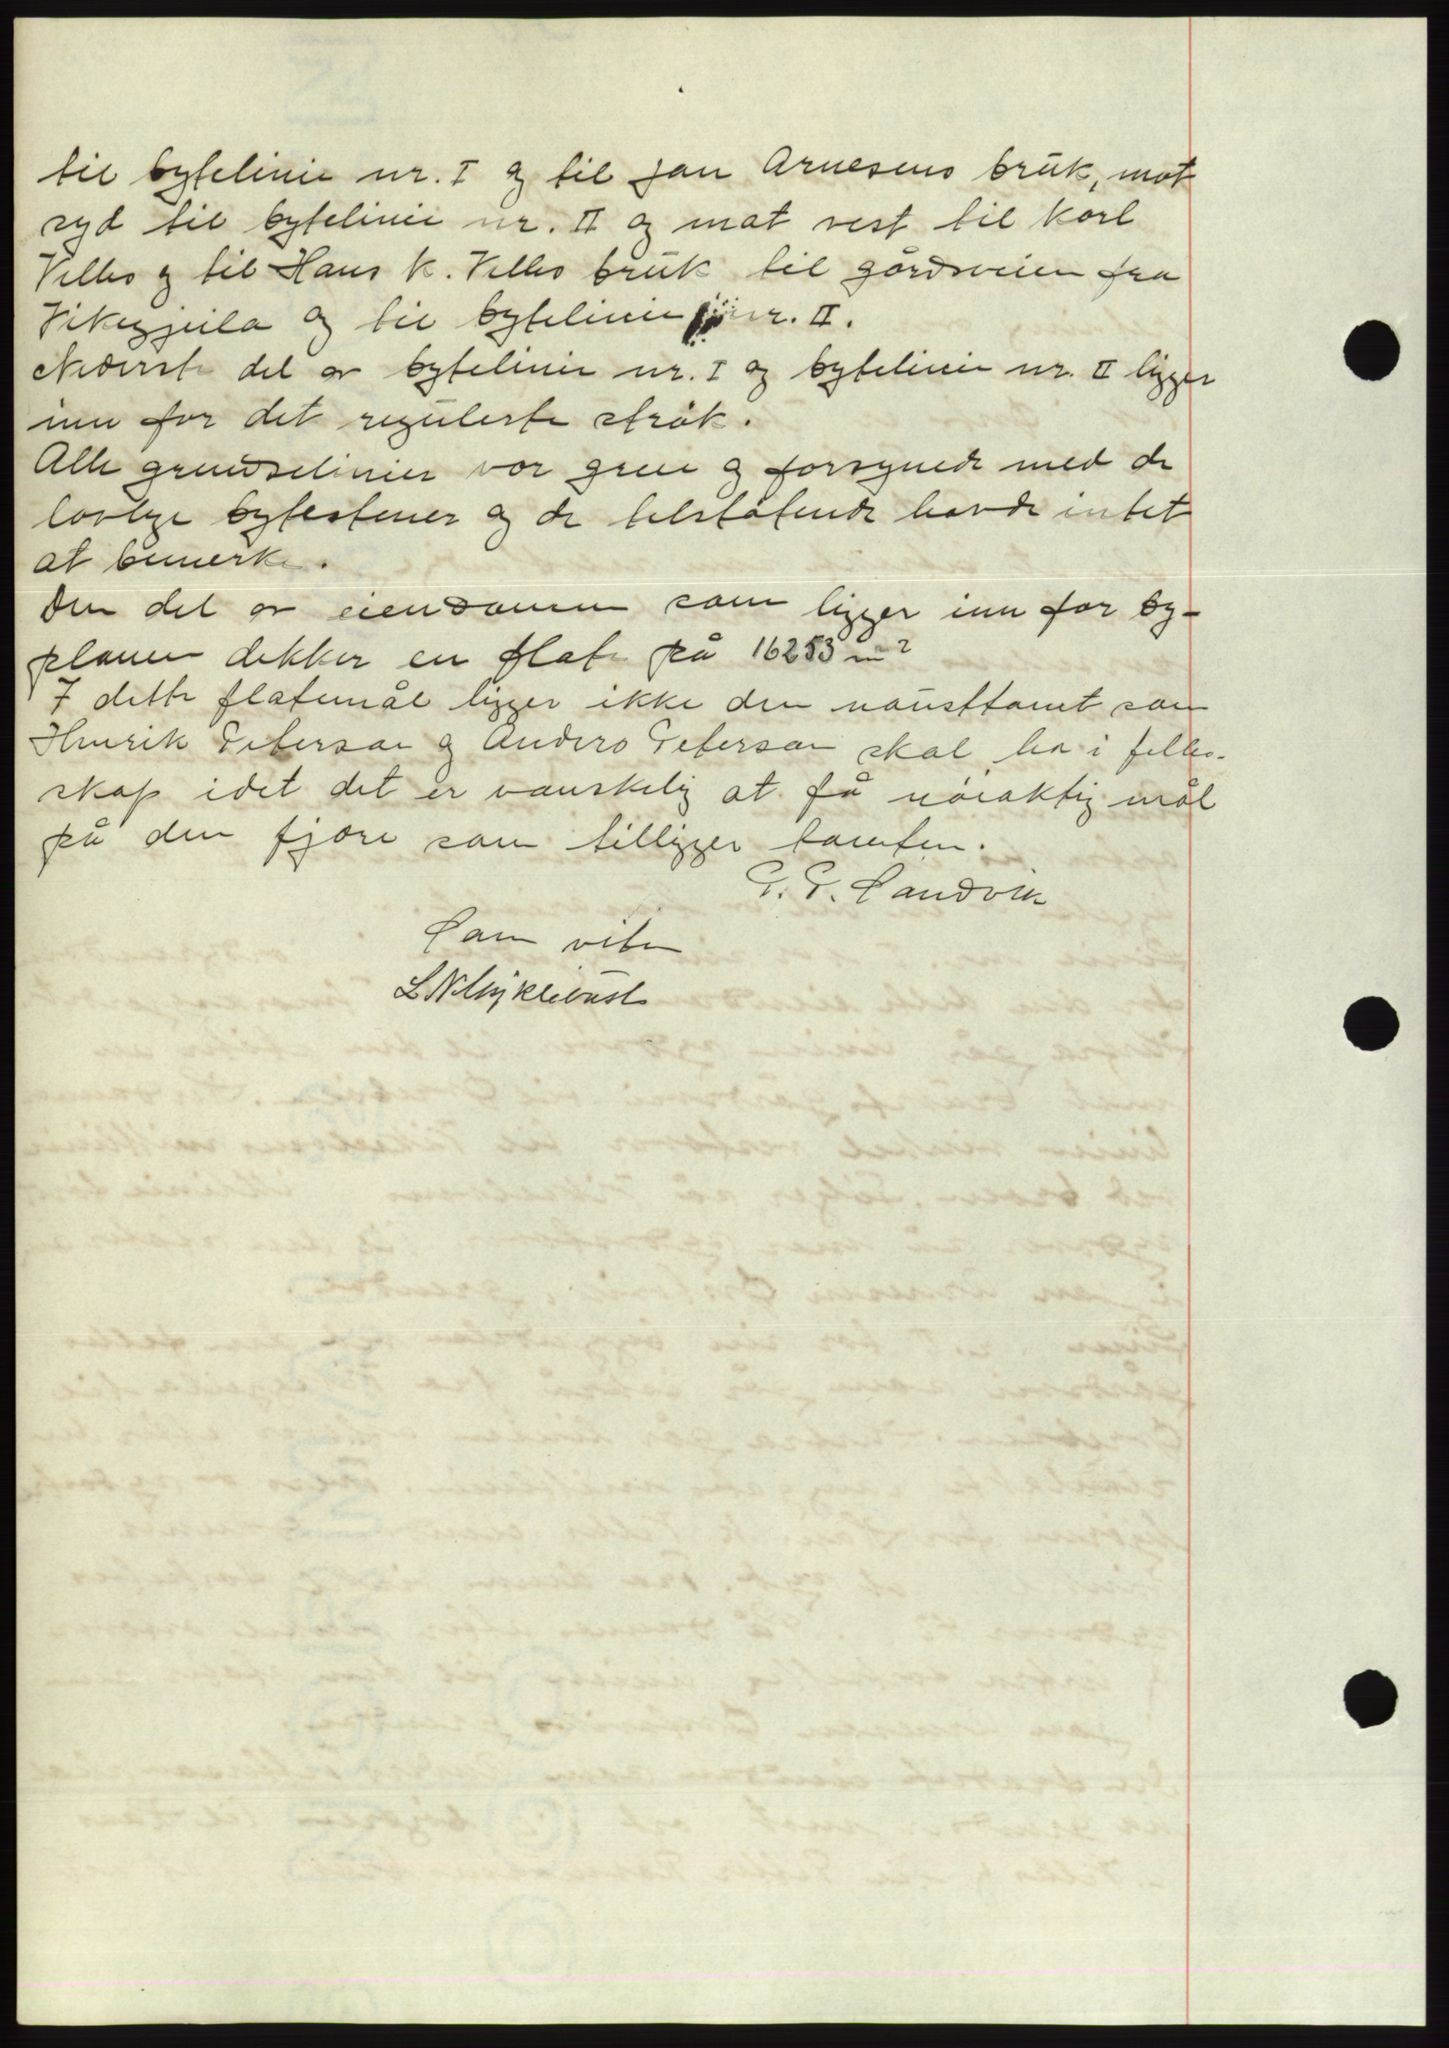 til bytelinie nr. I og til Jan Arnesens bruk, mot
syd til bytelinie nr. II og mot vest til Karl
Velles og til Hans K. Velles bruk til gårdsveien fra
Vikegjeila og til bytelinie nr. II.
Nederste del av bytelinie nr. I og bytelinie nr. II ligger
inn for det regulerte strøk.
Alle grenselinier var grei og forsynede med de
lovlige bytestener og de tilstøtende havde intet
at bemerke.
Den del av eiendomen som ligger inn for by-
planen dekker en flate på 16253 m²
I dette flatemål ligger ikke den nausttomt som
Henrik Peterson og Anders Peterson skal ha i felles-
skap idet det er vanskelig at få nøiaktig mål
på den fjøre som tilligger tomten.
P. P. Sandvik
Som viten
L N Myklebust